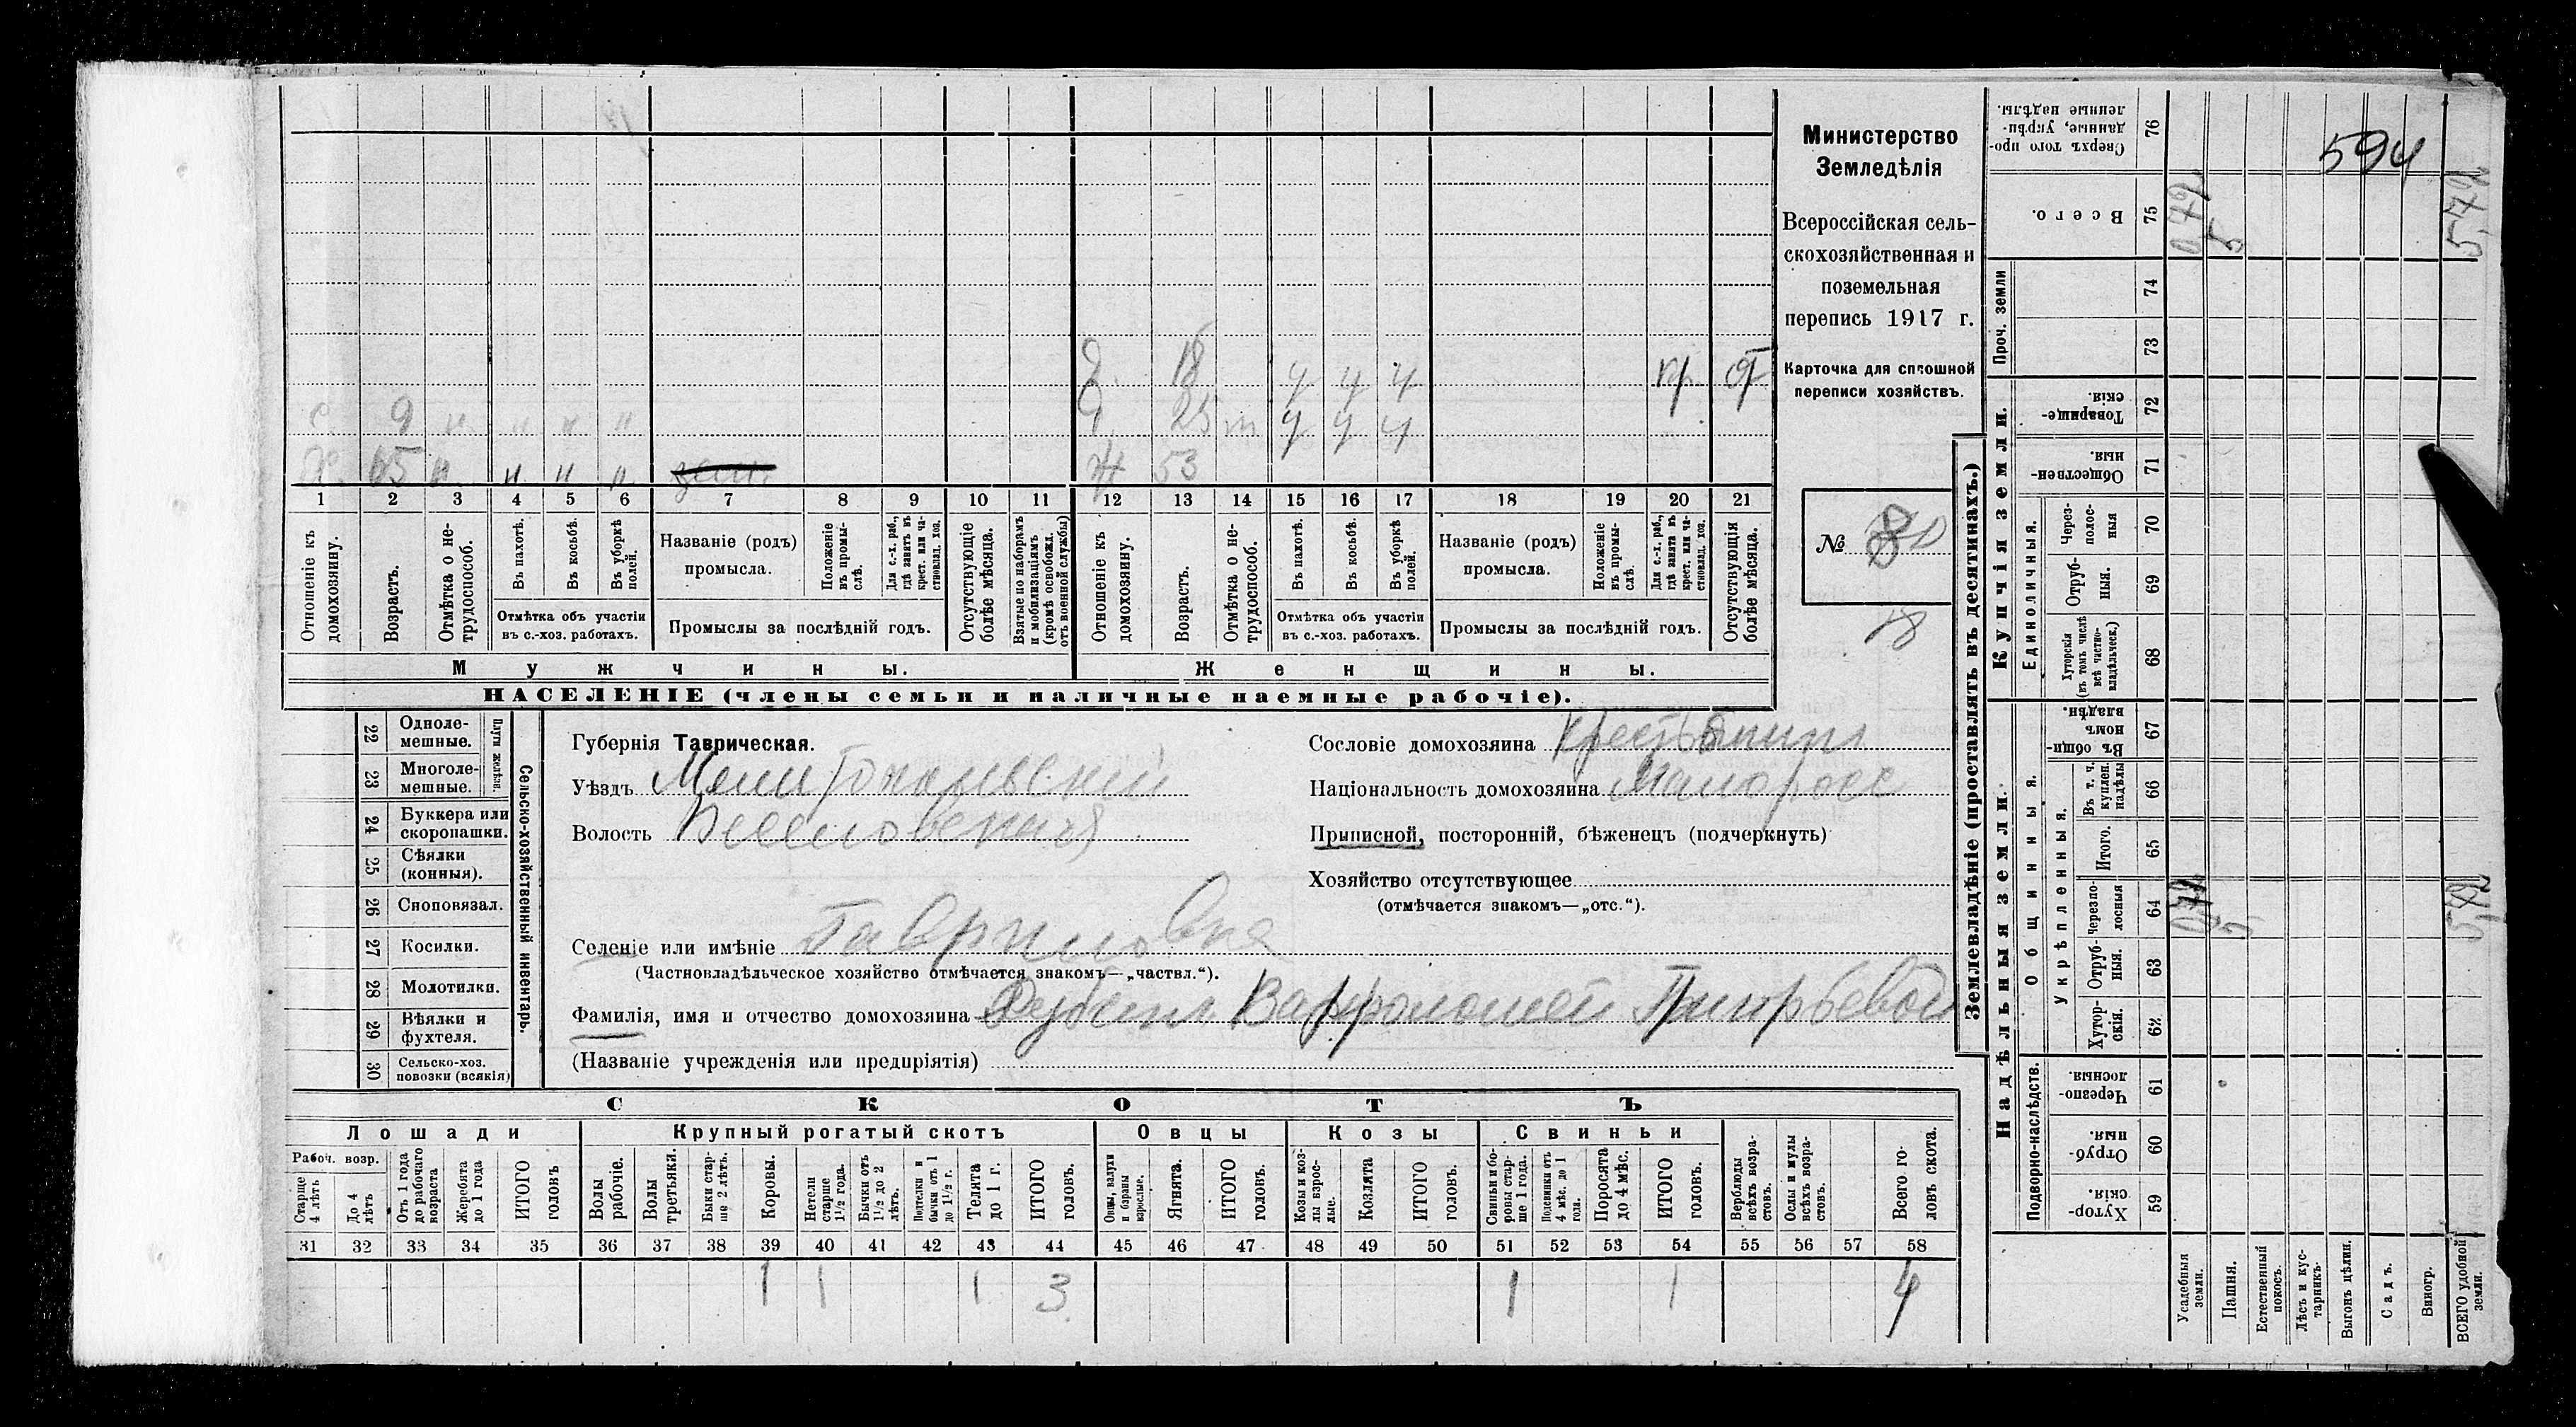 594
Министерство
Земледѣлія
Всероссійская сель-
скохозяйственная и
поземельная
перепись 1917 г.
Карточка для сплошной
переписи хозяйствъ.
№ 80
18
Д. 18 у у у кр от
Д. 25 у у у
Ж 53
с 9 н н н н
Х. 65 н н н н
1 2 3 4 5 6 7 8 9 10 11 12 13 14 15 16 17 18 19 20 21
Отношеніе къ домохозяину.
Возрастъ.
Отмѣтка о не-трудоспособ.
Въ пахотѣ.
Въ косьбѣ.
Въ уборкѣ полей.
Отмѣтка объ участіи
въ с.-хоз. работахъ.
Названіе (родъ)
промысла.
Положеніе въ промы-слѣ.
Для с.-х. раб., гдѣ занятъ въ крест. или ча-стновлад. хоз.
Промыслы за послѣдній годъ.
Отсутствующіе болѣе мѣсяца.
Взятые по наборамъ и мобилизаціямъ (кромѣ освобожд. отъ военной службы)
Отношеніе къ домохозяину.
Возрастъ.
Отмѣтка о не-трудоспособ.
Въ пахотѣ.
Въ косьбѣ.
Въ уборкѣ полей.
Отмѣтка объ участіи
въ с.-хоз. работахъ.
Названіе (родъ)
промысла.
Положеніе въ промы-слѣ.
Для с.-х. раб., гдѣ занята въ крест. или ча-стновлад. хоз.
Промыслы за послѣдній годъ.
Отсутствующія болѣе мѣсяца.
Мужчины.
Женщины.
НАСЕЛЕНІЕ (члены семьи и наличные наемные рабочіе).
Сельско-хозяйственный инвентарь.
Плуги желѣзн.
22 Одноле-мешные.
23 Многоле-мешные.
24 Буккера или скоропашки.
25 Сѣялки (конныя).
26 Сноповязал.
27 Косилки.
28 Молотилки.
29 Вѣялки и фухтеля.
30 Сельско-хоз. повозки (всякія)
Губернія Таврическая.
Уѣздъ Мелитопольвскій
Волость
Селеніе или имѣніе Гавриловка
(Частновладѣльческое хозяйство отмѣчается знакомъ—„частвл.“).
Фамилія, имя и отчество домохозяина Варфоломей Григорьевъ
(Названіе учрежденія или предпріятія)
Сословіе домохозяина крестьянинъ
Національность домохозяина Малоросс
Приписной, посторонній, бѣженецъ (подчеркнуть)
Хозяйство отсутствующее
(отмѣчается знакомъ—„отс.“).
СКОТЪ
Лошади
Крупный рогатый скотъ
Овцы
Козы
Свиньи
Рабоч. возр.
Старше 4 лѣтъ
До 4 лѣтъ
Отъ 1 года до рабочаго возраста
Жеребята до 1 года
ИТОГО головъ
Волы рабочіе.
Волы третьяки.
Быки стар-ше 2 лѣтъ.
Коровы.
Нетели старше 1½ года.
Бычки отъ 1½ до 2 лѣтъ.
Подтелки и бычки отъ 1 до 1½ г.
Телята до 1 г.
ИТОГО головъ.
Овцы, валухи и бараны взрослые.
Ягнята.
ИТОГО головъ.
Козы и коз-лы взрос-лые.
Козлята
ИТОГО головъ.
Свиньи и бо-ровы стар-ше 1 года.
Подсвинки отъ 4 мѣс. до 1 года.
Поросята до 4 мѣс.
ИТОГО головъ.
Верблюды всѣхъ возра-стовъ.
Ослы и мулы всѣхъ возра-стовъ.
Всего го-ловъ скота.
31 32 33 34 35 36 37 38 39 40 41 42 43 44 45 46 47 48 49 50 51 52 53 54 55 56 57 58
1 1 1 3 1 1 4
Землевладѣніе (проставлять въ десятинахъ.)
Надѣльныя земли.
Купчія земли.
Проч. земли
Подворно-наслѣдств.
Общинныя.
Укрѣпленныя.
Единоличныя.
76 Сверхъ того про-данные, укрѣп-ленные надѣлы.
75 Всего. 0,72 5 5,72
74
73
72 Товарище-скія.
71 Обществен-ныя.
70 Через-полос-ныя
69 Отруб-ныя.
68 Хуторскія (въ томъ числѣ всѣ частно-владѣльческ.)
67 Въ общи-номъ владѣн.
66 Въ т. ч. куплен. надѣлы
65 Итого.
64 Черезпо-лосныя 0,72 5 5,72
63 Отруб-ныя.
62 Хутор-скія.
61 Черезпо-лосныя.
60 Отруб-ныя.
59 Хутор-скія.
Усадебныя земли.
Пашня.
Естественный покосъ.
Лѣсъ и кус-тарникъ.
Выгонъ цѣлин.
Садъ.
Виногр.
ВСЕГО удобной земли.